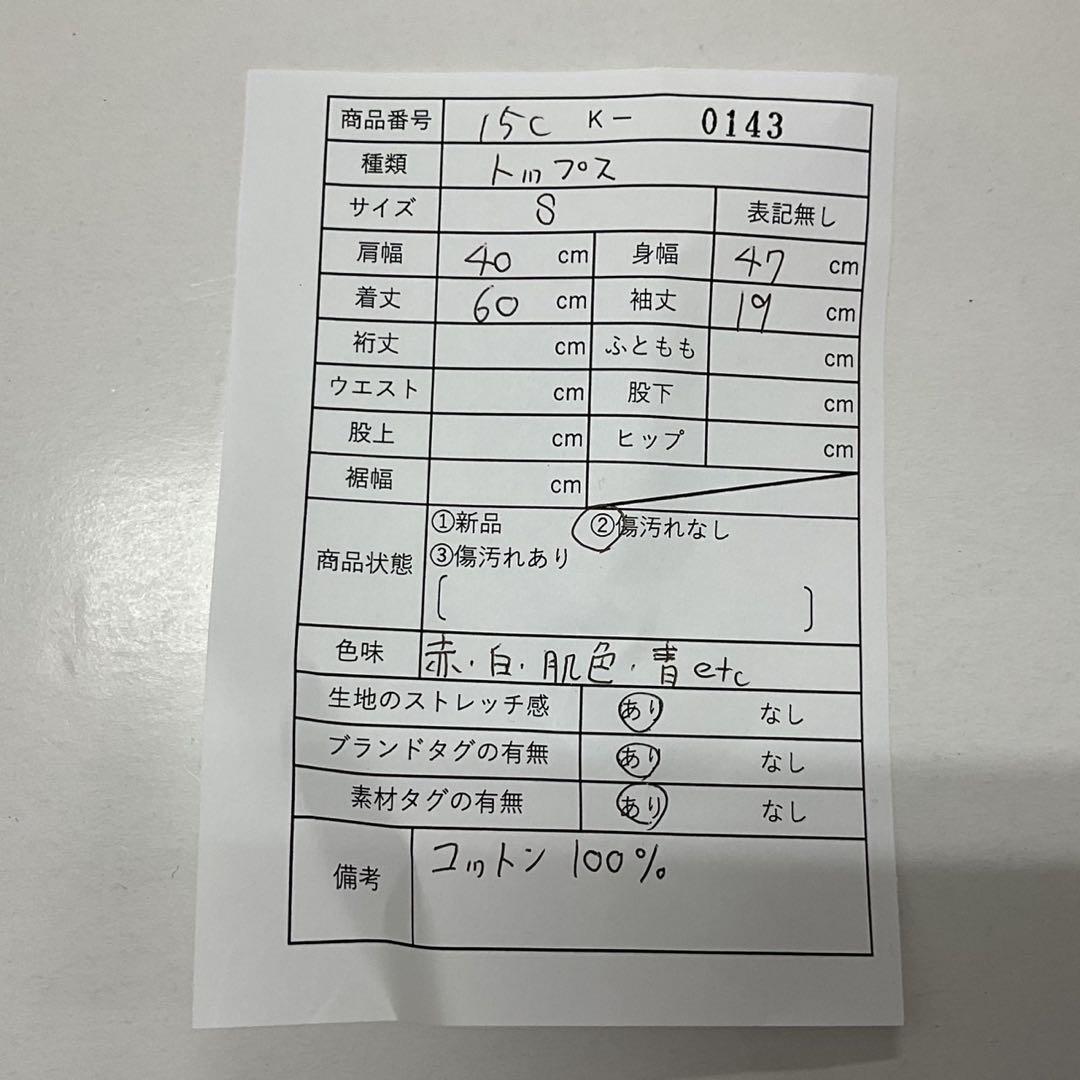 商品番号 15C K- 0143
種類 トップス
サイズ S 表記無し
肩幅 40 cm 身幅 47 cm
着丈 60 cm 袖丈 19 cm
裄丈 cm ふともも cm
ウエスト cm 股下 cm
股上 cm ヒップ cm
裾幅 cm
商品状態 ①新品 ②傷汚れなし
③傷汚れあり
[ ]
色味 赤・白・肌色・青 etc
生地のストレッチ感 あり なし
ブランドタグの有無 あり なし
素材タグの有無 あり なし
備考 コットン 100%